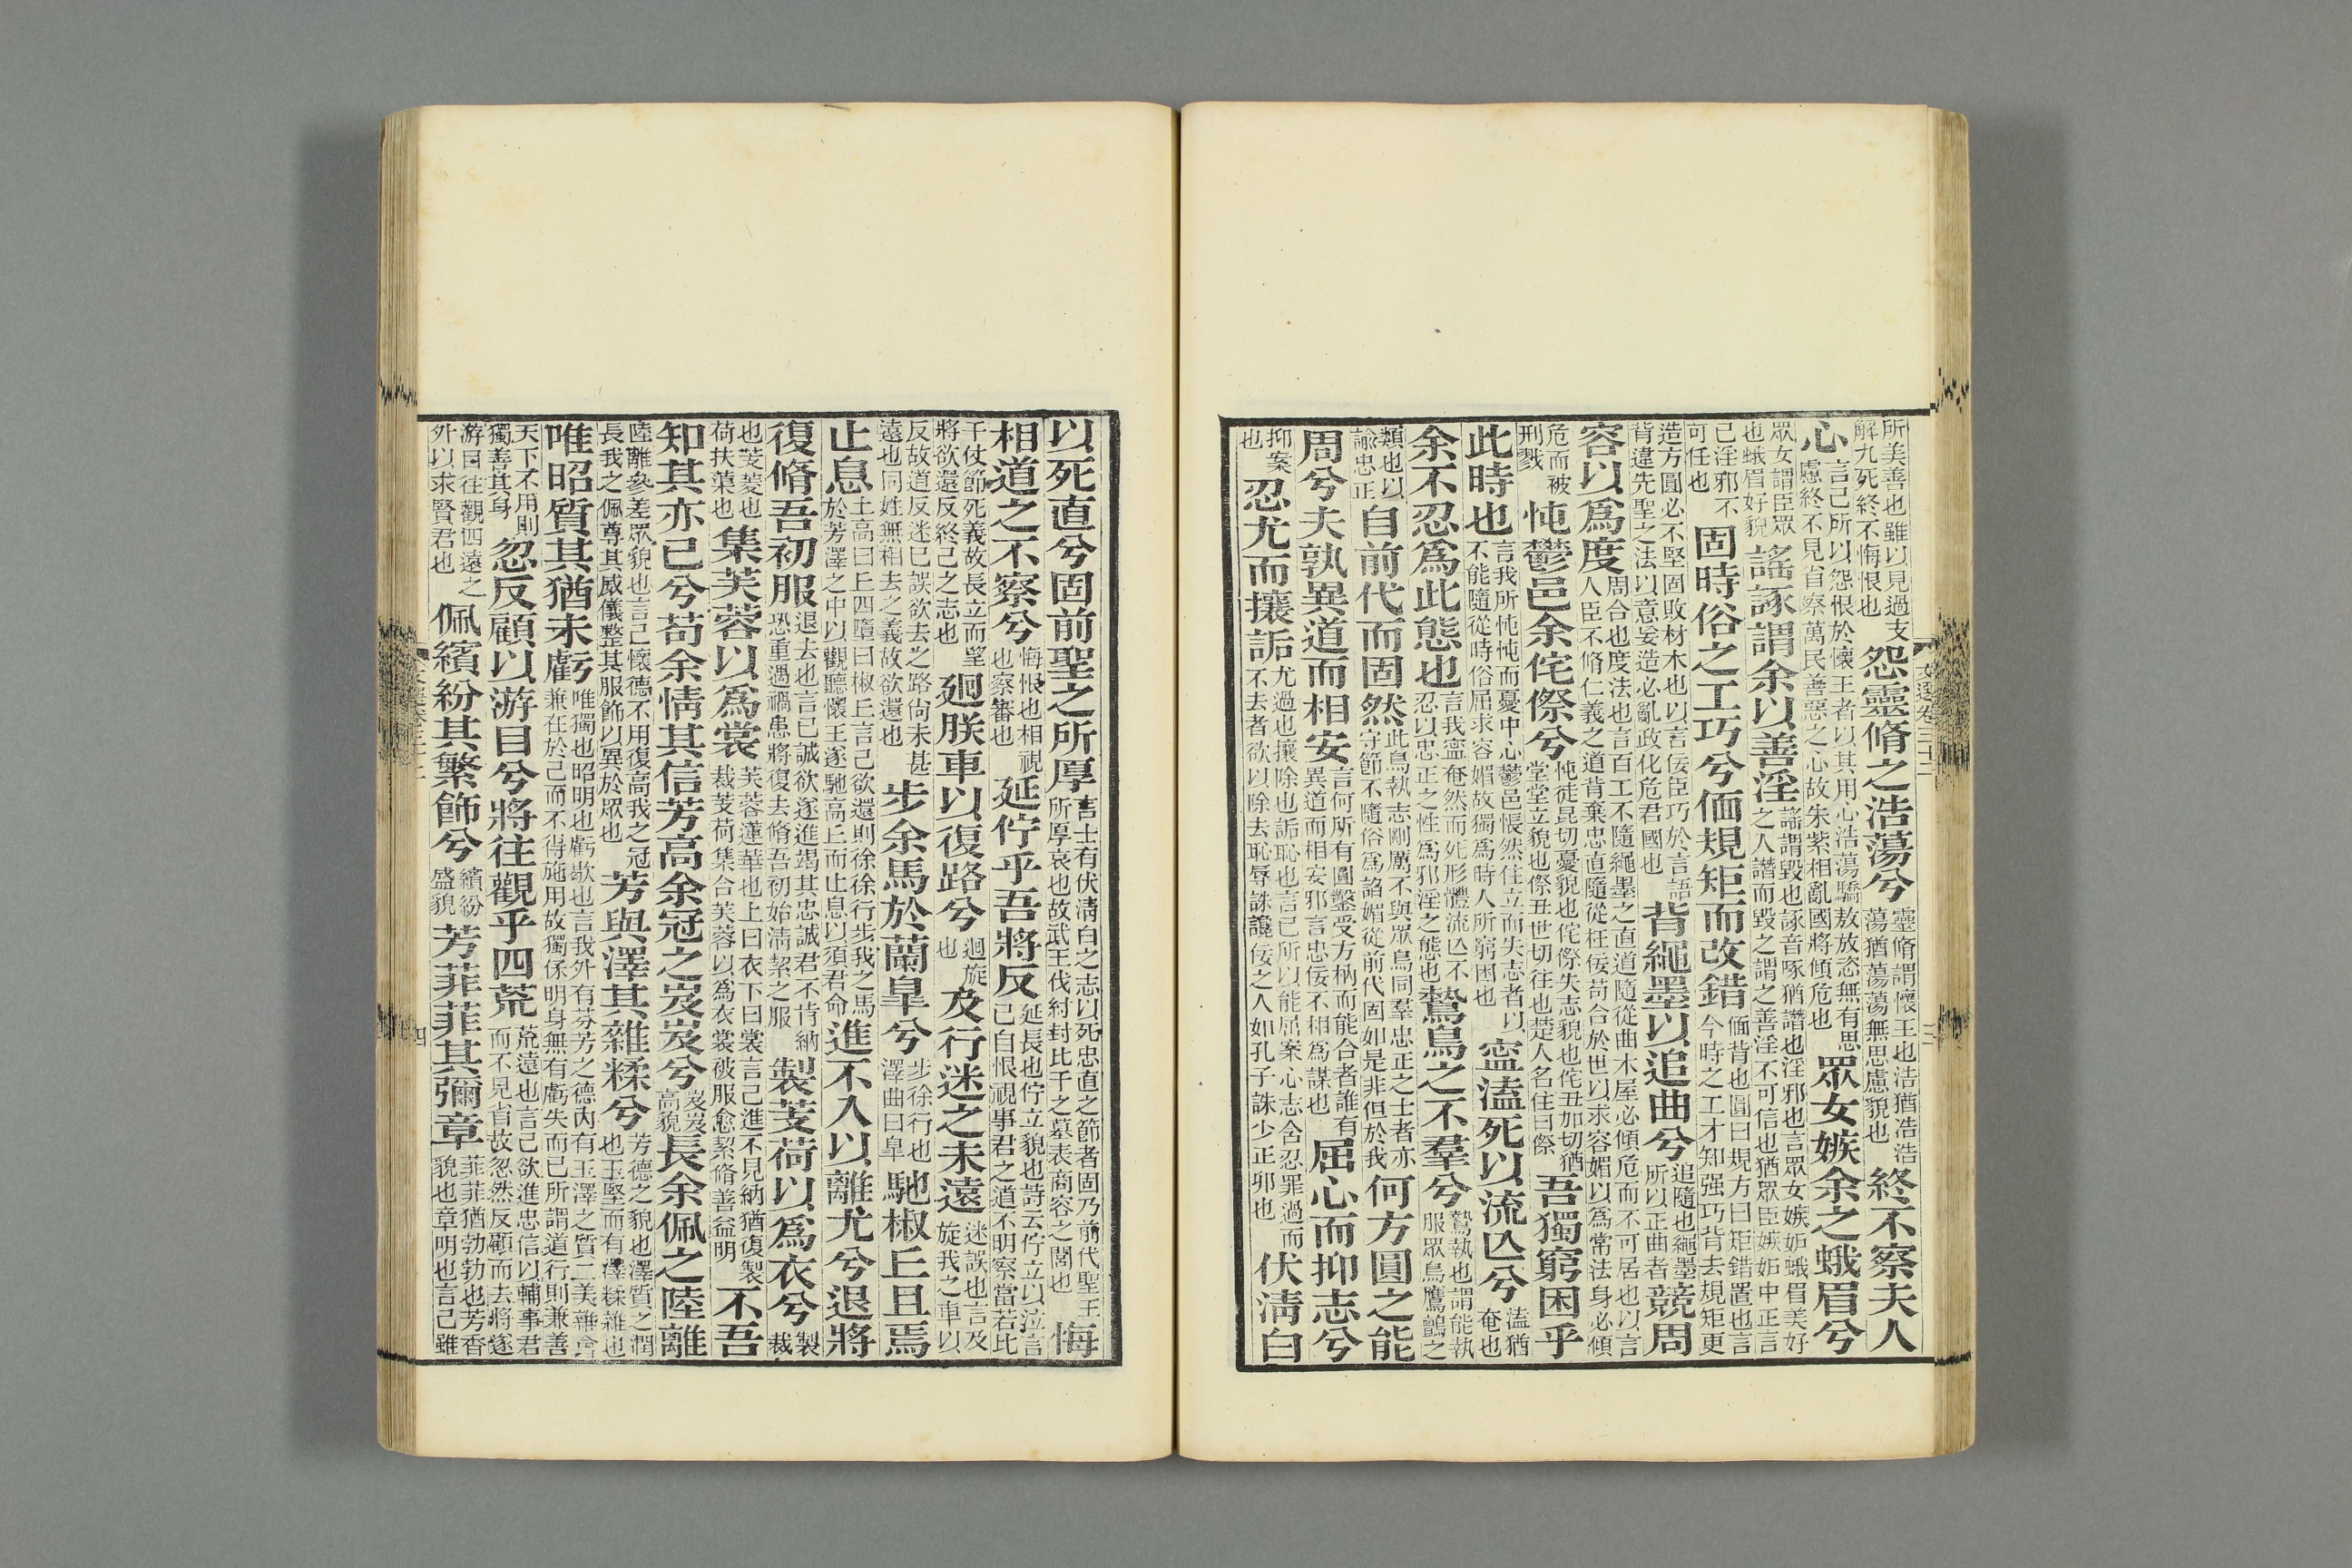 所美善也雖以見過支解九死終不悔恨也怨靈脩之浩蕩兮靈脩謂懷王也浩猶浩浩蕩猶蕩蕩無思慮貌也終不察夫人
心言己所以怨恨於懷王者以其用心浩蕩驕敖放恣無有思慮終不見省察萬民善惡之心故朱紫相亂國將傾危也眾女嫉余之蛾眉兮
眾女謂臣眾也蛾眉好貌謠諑謂余以善淫謠謂毀也諑音啄猶譖也淫邪也言眾女嫉妬蛾眉美好之人譖而毀之謂之善淫不可信也猶眾臣嫉妬中正言
己淫邪不可任也固時俗之工巧兮偭規矩而改錯偭背也圓曰規方曰矩錯置也言今時之工才知强巧背去規矩更
造方圓必不堅固敗材木也以言佞臣巧於言語背違先聖之法以意妄造必亂政化危君國也背繩墨以追曲兮追隨也繩墨所以正曲者競周
容以爲度周合也度法也言百工不隨繩墨之直道隨從曲木屋必傾危而不可居也以言人臣不脩仁義之道背棄忠直隨從枉佞苟合於世以求容媚以爲常法身必傾
危而被刑戮忳鬱邑余侘傺兮忳徒昆切憂貌也侘傺失志貌也侘丑加切猶堂堂立貌也傺丑世切往也楚人名住曰傺吾獨窮困乎
此時也言我所忳忳而憂中心鬱邑悵然住立而失志者以不能隨從時俗屈求容媚故獨爲時人所窮困也寍溘死以流亾兮溘猶奄也
余不忍爲此態也言我寍奄然而死形體流亾不忍以忠正之性爲邪淫之態也鷙鳥之不羣兮鷙執也謂能執服眾鳥鷹鸇之
類也以諭忠正自前代而固然此鳥執志剛厲不與眾鳥同羣忠正之士者亦守節不隨俗爲諂媚從前代固如是非但於我何方圓之能
周兮夫孰異道而相安言何所有圓鑿受方枘而能合者誰有異道而相安邪言忠佞不相爲謀也屈心而抑志兮
抑案也忍尤而攘詬尤過也攘除也詬恥也言己所以能屈案心志含忍罪過而不去者欲以除去恥辱誅讒佞之人如孔子誅少正卯也伏清白
文選卷三十二
三
以死直兮固前聖之所厚言士有伏清白之志以死忠直之節者固乃前代聖王所厚哀也故武王伐紂封比干之墓表商容之閭也悔
相道之不察兮悔恨也相視也察審也延佇乎吾將反延長也佇立貌也詩云佇立以泣言己自恨視事君之道不明察當若比
干仗節死義故長立而望將欲還反終己之志也廻朕車以復路兮迴旋也及行迷之未遠迷誤也言及旋我之車以
反故道反迷已誤欲去之路尚未甚遠也同姓無相去之義故欲還也步余馬於蘭皐兮步徐行也澤曲曰皐馳椒丘且焉
止息土高曰丘四墮曰椒丘言己欲還則徐徐行步我之馬於芳澤之中以觀聽懷王遂馳高丘而止息以須君命進不入以離尤兮退將
復脩吾初服退去也言己誠欲遂進竭其忠誠君不肯納恐重遇禍患將復去脩吾初始清絜之服製芰荷以爲衣兮製裁
也芰菱也荷扶蕖也集芙蓉以爲裳芙蓉蓮華也上曰衣下曰裳言己進不見納猶復製裁芰荷集合芙蓉以爲衣裳被服愈絜脩善益明不吾
知其亦已兮苟余情其信芳高余冠之岌岌兮岌岌高貌長余佩之陸離
陸離參差眾貌也言己懷德不用復高我之冠長我之佩尊其威儀整其服飾以異於眾也芳與澤其雜糅兮芳德之貌也澤質之潤也玉堅而有澤糅雜也
唯昭質其猶未虧唯獨也昭明也虧歇也言我外有芬芳之德內有玉澤之質二美雜會兼在於己而不得施用故獨保明身無有虧失而已所謂道行則兼善
天下不用則獨善其身忽反顧以游目兮將往觀乎四荒荒遠也言己欲進忠信以輔事君而不見省故忽然反顧而去將遂
游目往觀四遠之外以求賢君也佩繽紛其繁飾兮繽紛盛貌芳菲菲其彌章菲菲猶勃勃也芳香貌也章明也言己雖
四